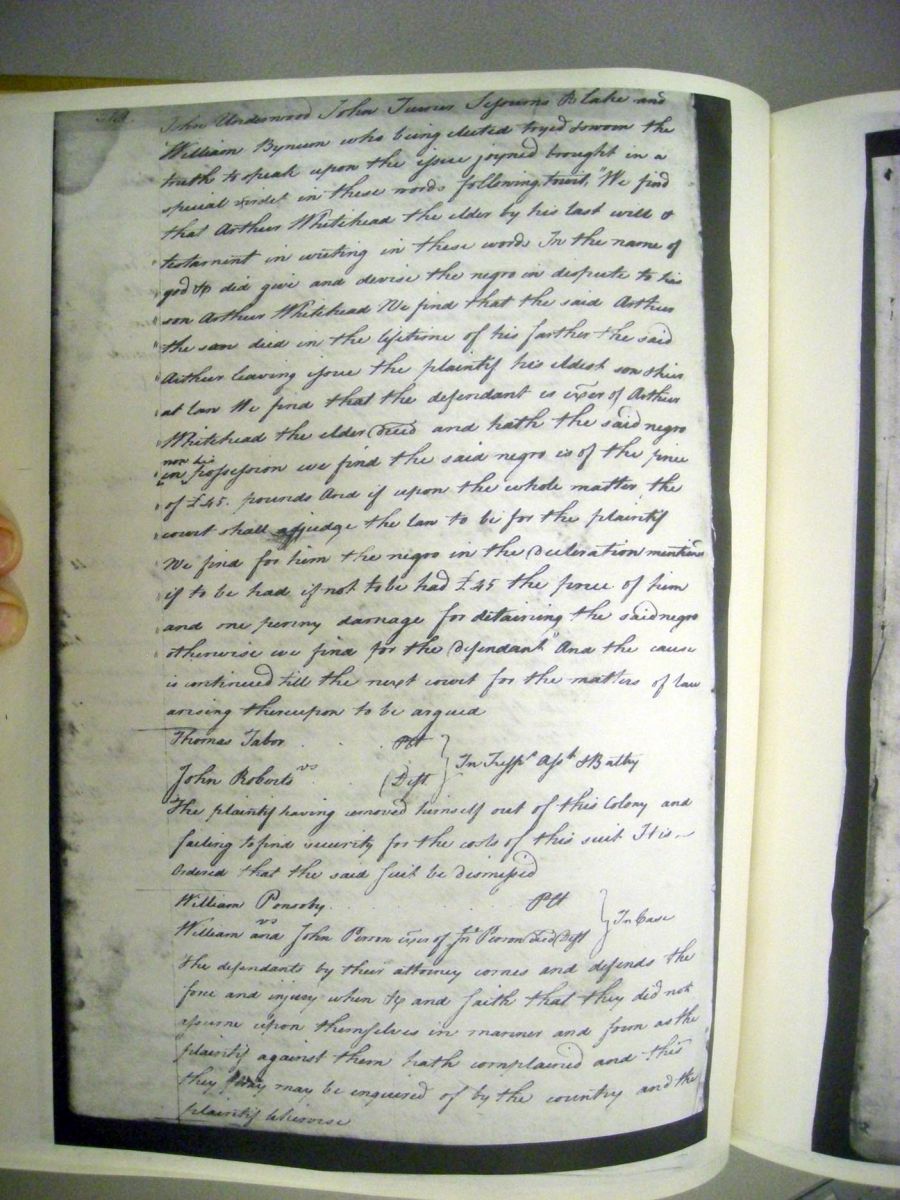 John Underwood John Turner Sejourns Blake and
William Bynum who being elected tryed & sworn the
truth to speak upon the issue joyned brought in a
special virdet in these words following, towit, We find
that Arthur Whitehead the elder by his last will &
testament in writing in these words In the name of
god &c did give and devise the negro in despute to his
son Arthur Whitehead We find that the said Arthur
the son died in the lifetime of his farther the said
Arthur leaving issue the plaintif his eldest son & heir
at law We find that the defendant is exer of Arthur
Whitehead the elder Deced and hath the said negro
now his
in Possession we find the said negro is of the price
of £45. pounds And if upon the whole matter the
court shall adjudge the law to be for the plaintif
We find for him the negro in the Decleration mention'd
if to be had if not to be had £45 the price of him
and one penny damage for detaining the said negro
otherwise we find for the Defendant" And the cause
is continued till the next court for the matters of law
arising thereupon to be argued
Thomas Tabor Plt
vs In Tresps Asst & Batty
John Roberts Deft
The plaintif having removed himself out of this Colony and
failing to find security for the costs of this suit It is
Ordered that the said suit be dismissed
William Ponsonby Plt
vs In Case
William and John Person exers of Jno Person Deced Deft
The defendants by their attorney comes and defends the
force and injury when &c and saith that they did not
assume upon themselves in manner and form as the
plaintif against them hath complained and this
they pray may be enquired of by the country and the
plaintif likewise